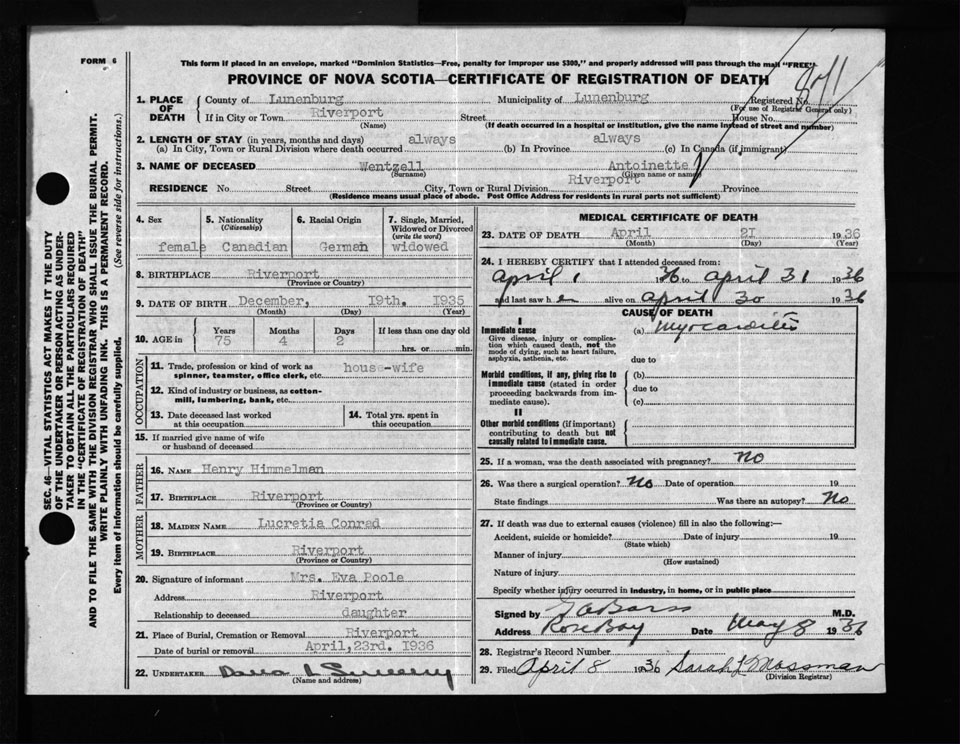 FORM 6
This form if placed in an envelope, marked "Dominion Statistics—Free, penalty for improper use $300," and properly addressed will pass through the mail "FREE"
PROVINCE OF NOVA SCOTIA—CERTIFICATE OF REGISTRATION OF DEATH
SEC. 46—VITAL STATISTICS ACT MAKES IT THE DUTY
OF THE UNDERTAKER OR PERSON ACTING AS UNDER-
TAKER TO OBTAIN ALL THE PARTICULARS REQUIRED
IN THE "CERTIFICATE OF REGISTRATION OF DEATH"
AND TO FILE THE SAME WITH THE DIVISION REGISTRAR WHO SHALL ISSUE THE BURIAL PERMIT.
WRITE PLAINLY WITH UNFADING INK. THIS IS A PERMANENT RECORD.
Every item of information should be carefully supplied. (See reverse side for instructions.)
1. PLACE OF DEATH County of Lunenburg Municipality of Lunenburg Registered No.
(For use of Registrar General only)
If in City or Town Riverport Street House No.
(Name) (If death occurred in a hospital or institution, give the name instead of street and number)
2. LENGTH OF STAY (in years, months and days)
(a) In City, Town or Rural Division where death occurred always (b) In Province always (c) In Canada (if immigrant)
3. NAME OF DECEASED Wentzell Antoinette
(Surname) (Given name or names)
RESIDENCE No. Street City, Town or Rural Division Riverport Province
(Residence means usual place of abode. Post Office Address for residents in rural parts not sufficient)
4. Sex female
5. Nationality (Citizenship) Canadian
6. Racial Origin German
7. Single, Married, Widowed or Divorced (write the word) widowed
8. BIRTHPLACE Riverport
(Province or Country)
9. DATE OF BIRTH December, 19th. 1935
(Month) (Day) (Year)
10. AGE in Years 75 Months 4 Days 2 If less than one day old hrs. or min.
OCCUPATION
11. Trade, profession or kind of work as spinner, teamster, office clerk, etc. house-wife
12. Kind of industry or business, as cotton-mill, lumbering, bank, etc.
13. Date deceased last worked at this occupation
14. Total yrs. spent in this occupation
15. If married give name of wife or husband of deceased
FATHER
16. NAME Henry Himmelman
17. BIRTHPLACE Riverport
(Province or Country)
MOTHER
18. MAIDEN NAME Lucretia Conrad
19. BIRTHPLACE Riverport
(Province or Country)
20. Signature of informant Mrs. Eva Poole
Address Riverport
Relationship to deceased daughter
21. Place of Burial, Cremation or Removal Riverport
Date of burial or removal April, 23rd. 1936
22. UNDERTAKER
(Name and address)
MEDICAL CERTIFICATE OF DEATH
23. DATE OF DEATH April 21 1936
(Month) (Day) (Year)
24. I HEREBY CERTIFY that I attended deceased from:
April 1 1936 to April 31 1936
and last saw her alive on April 30 1936
CAUSE OF DEATH
I
Immediate cause (a) Myocarditis
Give disease, injury or complication which caused death, not the mode of dying, such as heart failure, asphyxia, asthenia, etc.
due to
Morbid conditions, if any, giving rise to immediate cause (stated in order proceeding backwards from immediate cause).
(b)
due to
(c)
II
Other morbid conditions (if important) contributing to death but not causally related to immediate cause.
25. If a woman, was the death associated with pregnancy? No
26. Was there a surgical operation? No Date of operation 19
State findings Was there an autopsy? No
27. If death was due to external causes (violence) fill in also the following:—
Accident, suicide or homicide? Date of injury 19
(State which)
Manner of injury
(How sustained)
Nature of injury
Specify whether injury occurred in industry, in home, or in public place
Signed by M.D.
Address Rose Bay Date May 8 1936
28. Registrar's Record Number
29. Filed April 8 1936 Sarah L Mossman
(Division Registrar)